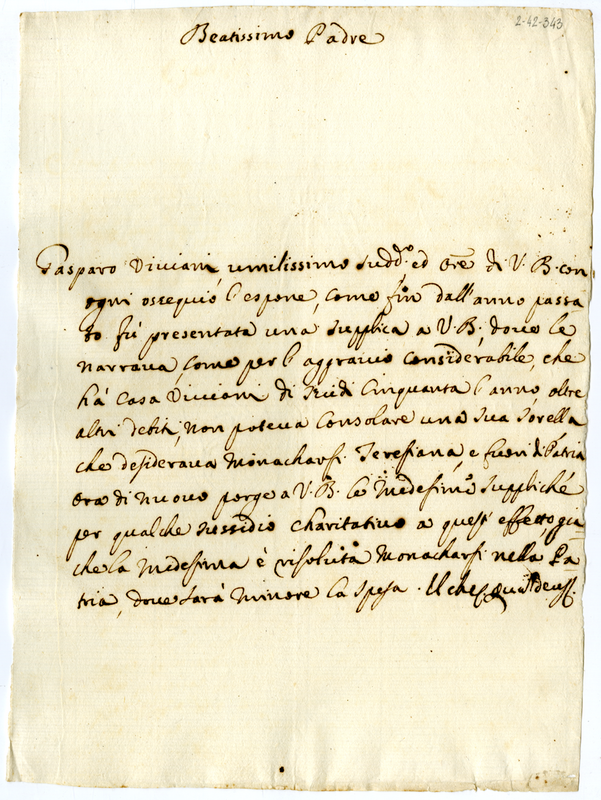 2-42-343
Beatissimo Padre
Gasparo Viviani umilissimo sudd.o ed Ore di V. B. con
ogni ossequio l'espone, come fin dall'anno passa
to fù presentata una supplica a V. B., dove le
narrava, come per l'aggravio considerabile, che
hà Casa Viviani di scudi Cinquanta l'anno, oltre
altri debiti, non poteva Consolare una sua sorella
che desiderava Monacharsi Teresiana, e fuori di Patria
Ora di nuovo porge a V. B. le medesime suppliche
per qualche sussidio charitativo a quest' effetto gia
che la medesima è risoluta Monacharsi nella Pa
tria, dove sarà minore la spesa. Il che